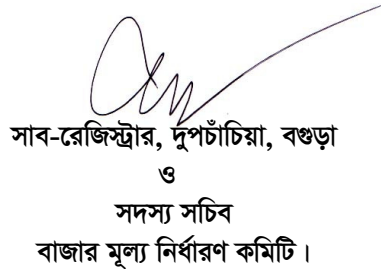 সাব-রেজিস্ট্রার, দুপচাঁচিয়া, বগুড়া
ও
সদস্য সচিব
বাজার মূল্য নির্ধারণ কমিটি।